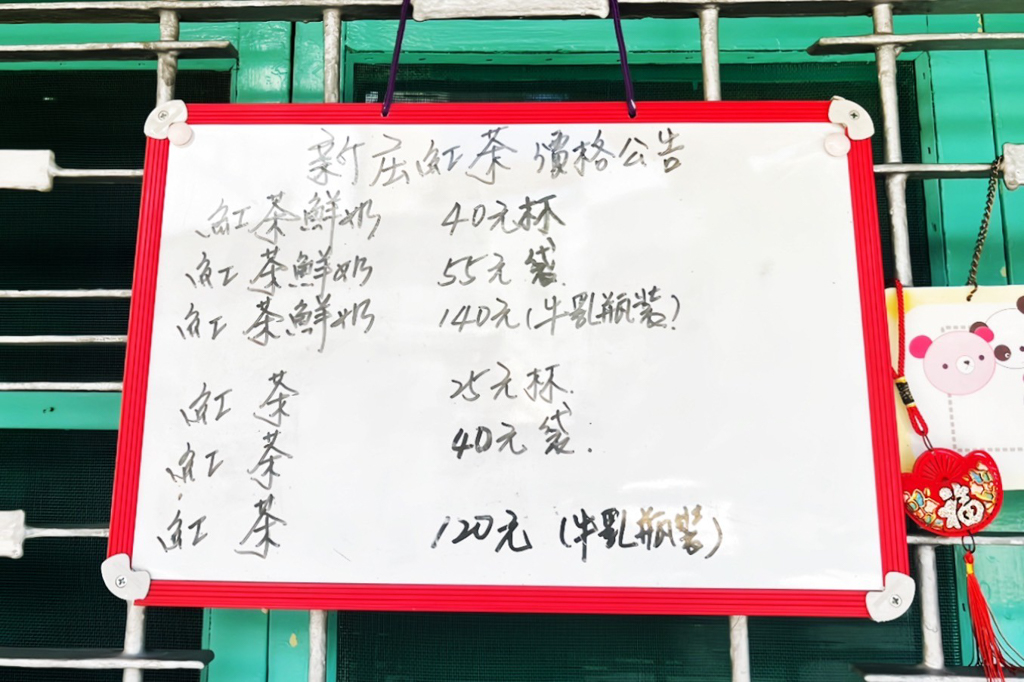 新庄紅茶 價格公告
紅茶鮮奶 40元杯
紅茶鮮奶 55元袋.
紅茶鮮奶 140元(牛乳瓶裝)
紅茶 25元杯.
紅茶 40元袋.
紅茶 120元(牛乳瓶裝)
福